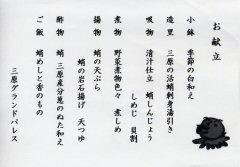 お献立
小鉢 季節の白和え
造里 三原の活蛸刺身湯引き
吸物 清汁仕立 蛸しんじょう
しめじ 貝割
煮物 野菜煮物色々 煮しめ
揚物 蛸の天ぷら
蛸の岩石揚げ 天つゆ
酢物 蛸 三原産分葱のぬた和え
ご飯 蛸めしと香のもの
三原グランドパレス